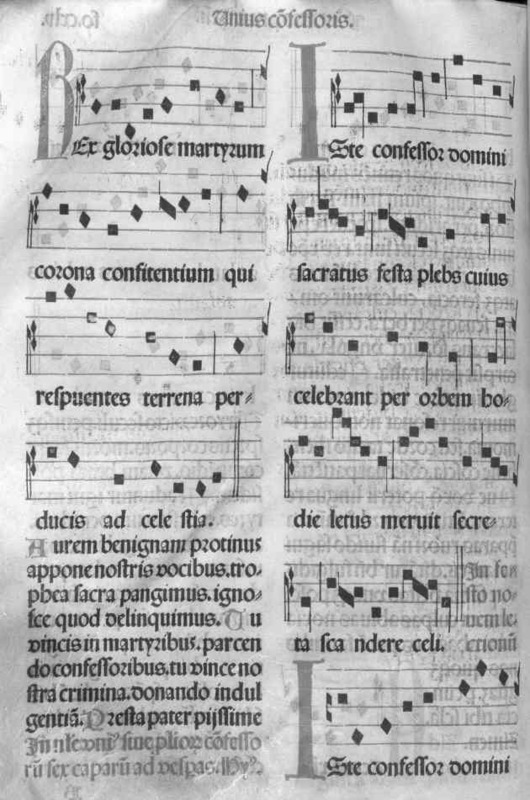 Unius cõfessoris.
REx gloriose martyrum
corona confitentium qui
respuentes terrena per-
ducis ad cele stia.
Aurem benignam protinus
appone nostris vocibus. tro-
phea sacra pangimus. igno-
sce quod delinquimus. Tu
vincis in martyribus. parcen
do confessoribus. tu vince no
stra crimina. donando indul
gentiã. Presta pater pijssime
ISte confessor domini
sacratus festa plebs cuius
celebrant per orbem ho-
die letus meruit secre-
ta sca ndere celi.
ISte confessor domini